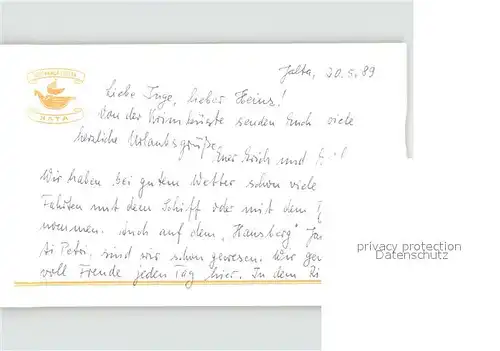 Jalta, 20.5.89
ЯЛТА
Liebe Inge, lieber Heinz!
Von der Krimküste senden Euch viele
herzliche Urlaubsgrüße.
Euer Erich und
Wir haben bei gutem Wetter schon viele
Fahrten mit dem Schiff oder mit dem
nommen. Auch auf dem "Hausberg"
Ai Petri, sind wir schon gewesen. Wir
voll Freude jeden Tag hier. In dem
privacy protection
Datenschutz